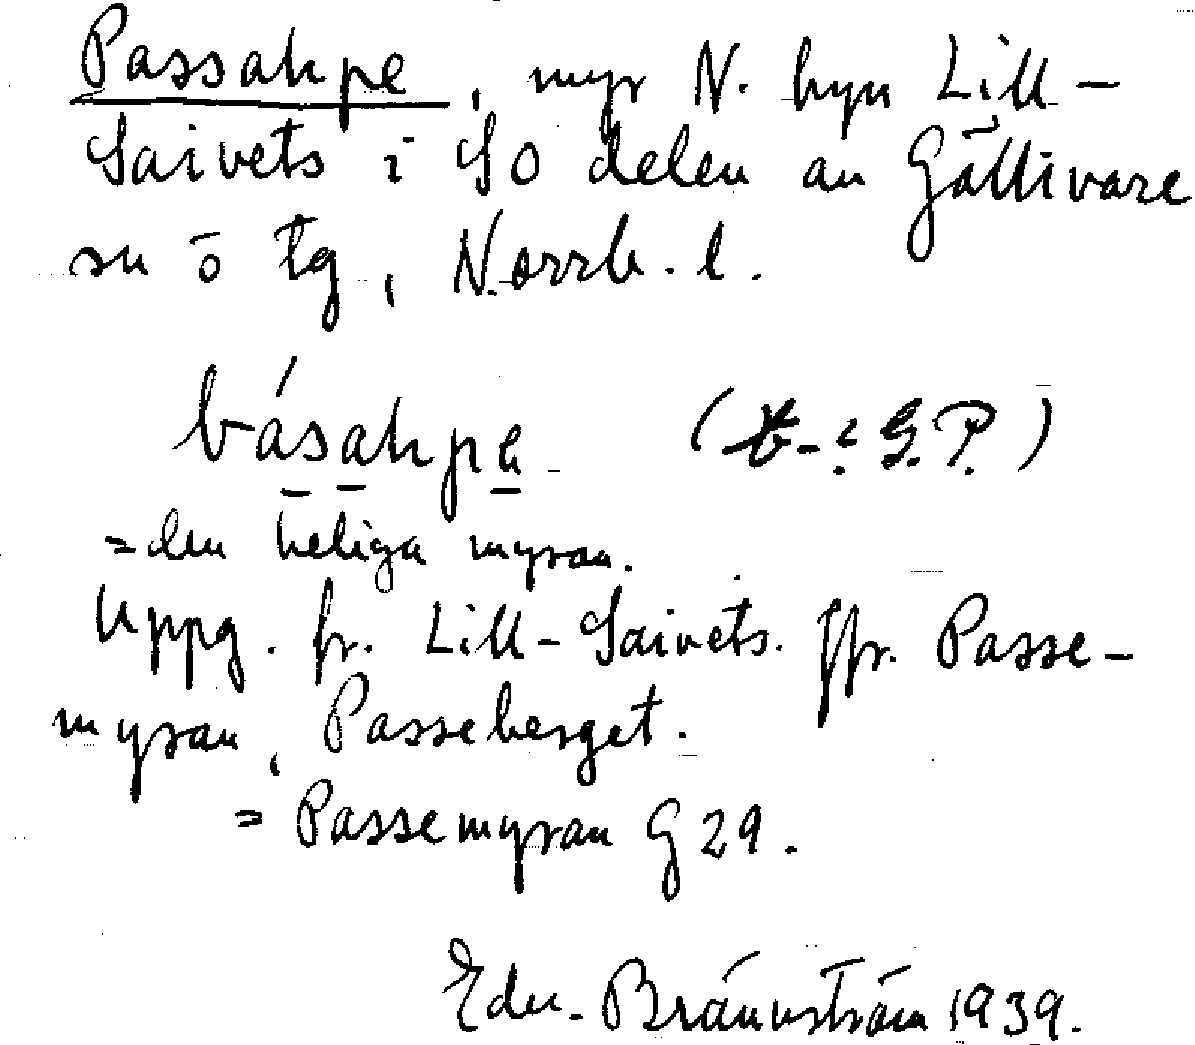 Passahpe, myr N. byn Lill-
Saivets i SO delen av Gällivare
sn o tg, Norrb. l.
básahpe
= den heliga myran.
Uppg. fr. Lill-Saivets. Jfr. Passe-
myran, Passeberget.
= Passemyran G 29.
Edv. Brännström 1939.